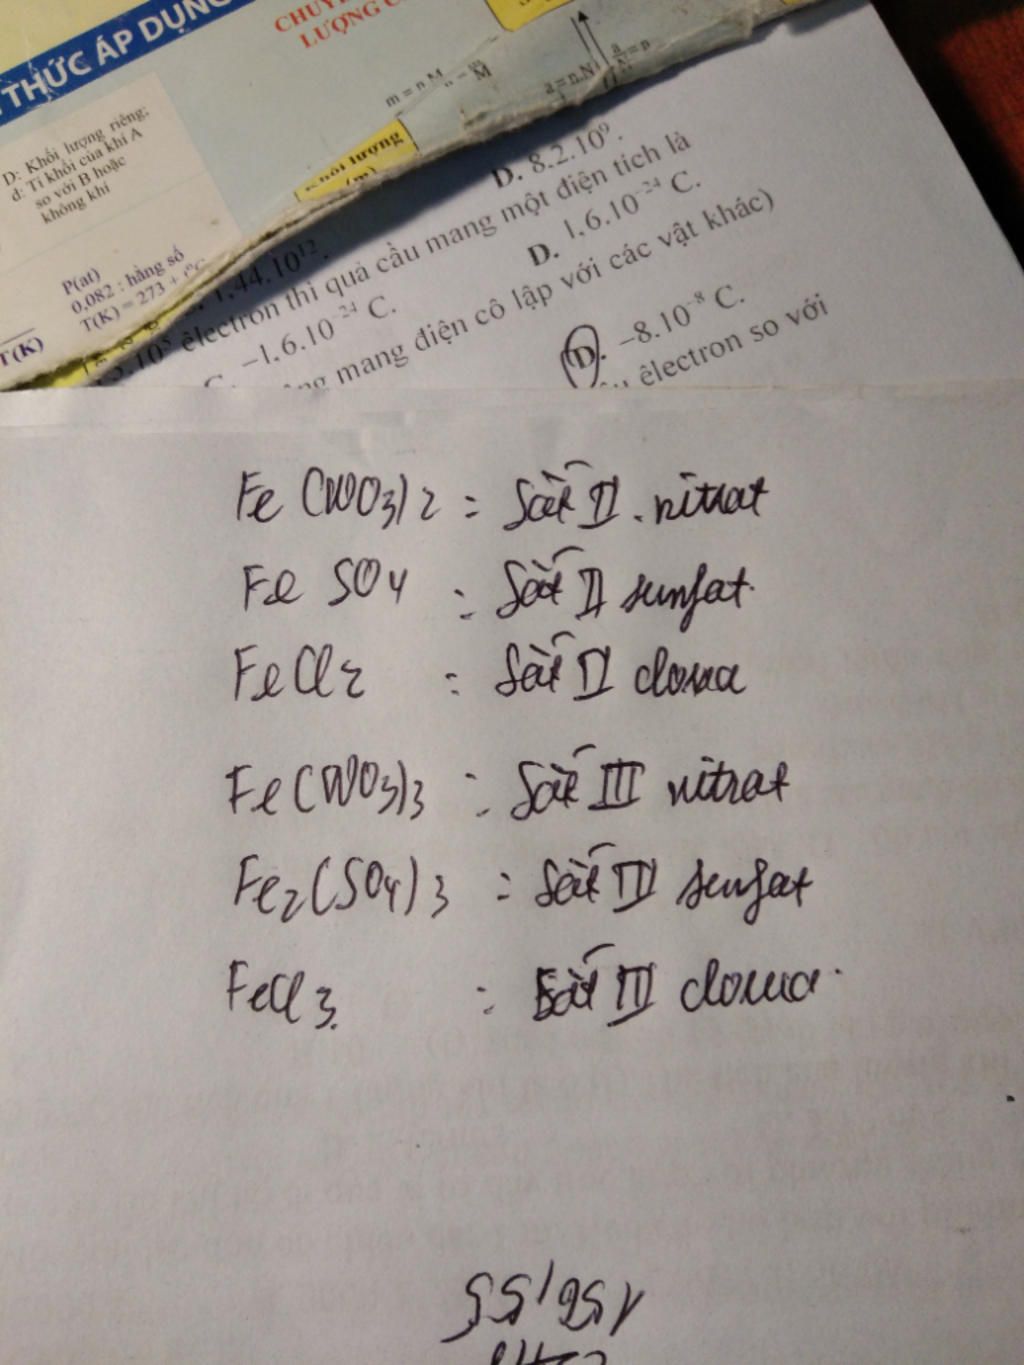 THỨC ÁP DỤNG
CHUY
LƯỢNG C
D: Khối lượng riêng;
d: Tỉ khối của khí A
so với B hoặc
không khí
m = n.M
a = n.N
P(at)
0,082 : hằng số
T(K) = 273 + t°C
T(K)
D. 8.2.10⁹.
1,44.10¹².
êlectron thì quả cầu mang một điện tích là
−1,6.10⁻²⁴ C.
D. 1,6.10⁻²⁴ C.
mang điện cô lập với các vật khác)
D. −8.10⁻⁸ C.
êlectron so với
Fe(NO3)2 = Sắt II. nitrat
FeSO4 : Sắt II sunfat.
FeCl2 : Sắt II clorua
Fe(NO3)3 : Sắt III nitrat
Fe2(SO4)3 : Sắt III sunfat
FeCl3. : Sắt III clorua.